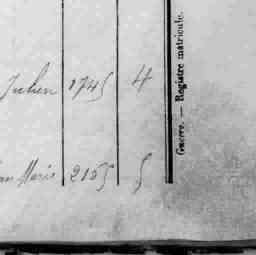 Julien 1745 4
Marie 2165 5
Guerre. — Registre matricule.